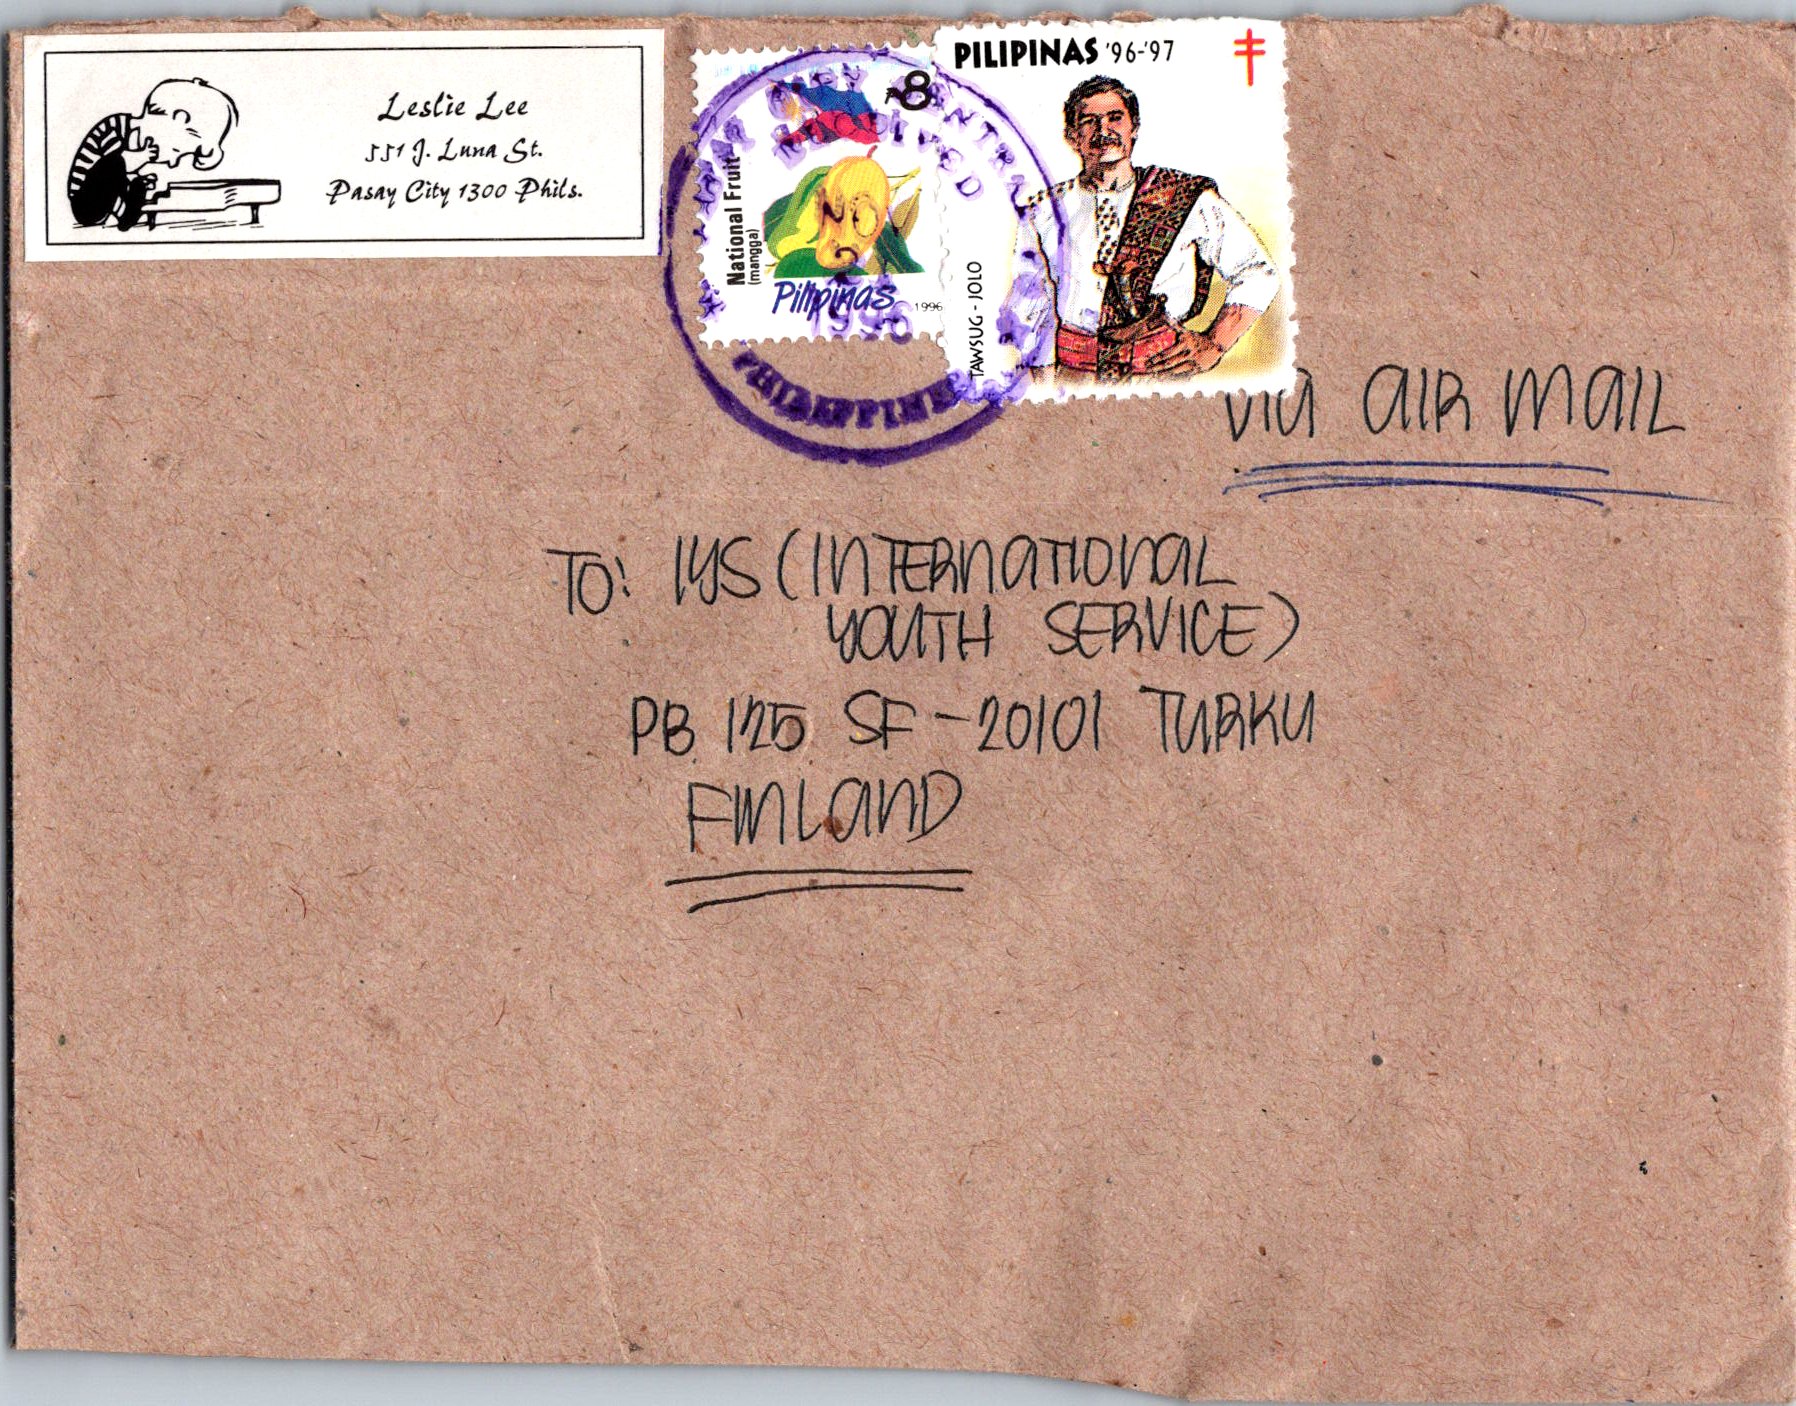 Leslie Lee
551 J. Luna St.
Pasay City 1300 Phils.
P8
National Fruit
(mangga)
Pilipinas
1996
PILIPINAS '96-'97
TAWSUG - JOLO
CENTRAL
NO
20
1996
PHILIPPINES
VIA AIR MAIL
TO: IYS (INTERNATIONAL
YOUTH SERVICE)
PB 125 SF-20101 TURKU
FINLAND